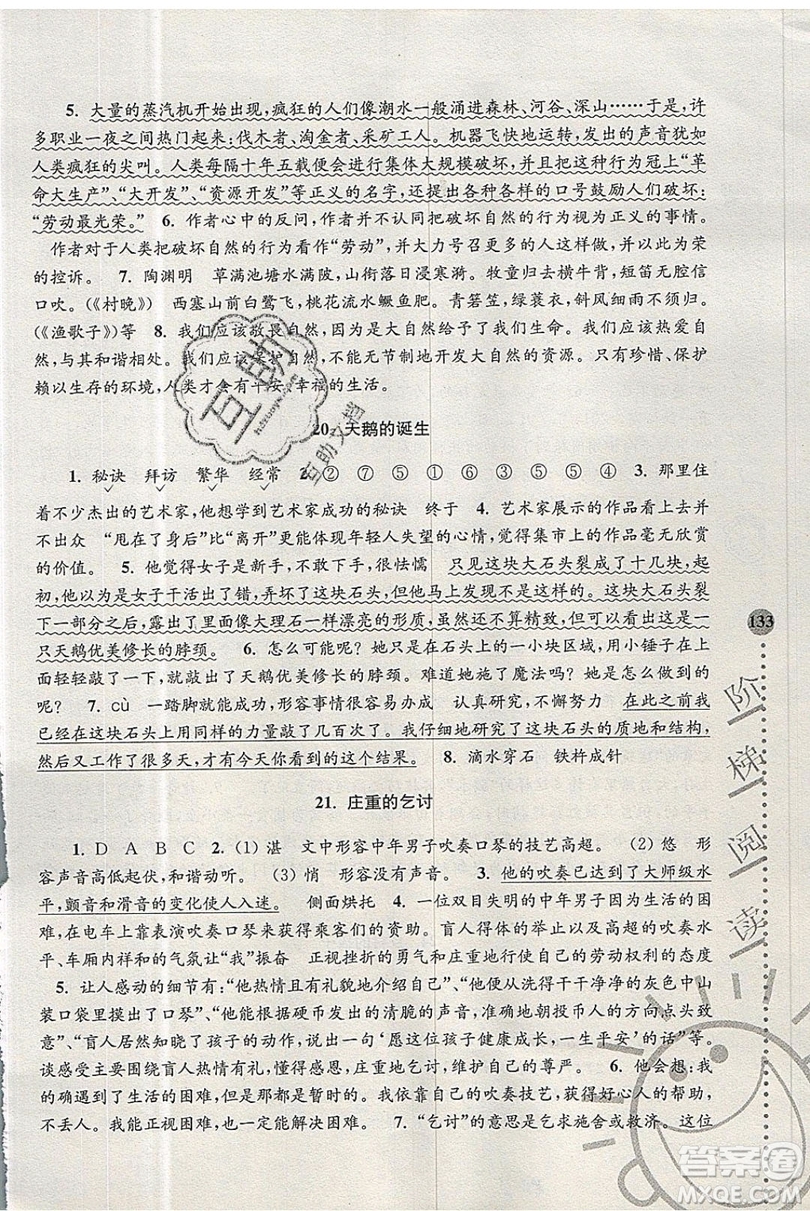 5. 大量的蒸汽机开始出现,疯狂的人们像潮水一般涌进森林、河谷、深山……于是,许
多职业一夜之间热门起来:伐木者、淘金者、采矿工人。机器飞快地运转,发出的声音犹如
人类疯狂的尖叫。人类每隔十年五载便会进行集体大规模破坏,并把这种行为冠上“革
命大生产”、“大开发”、“资源开发”等正义的名字,还提出各种各样的口号鼓励人们破坏:
“劳动最光荣。” 6. 作者心中的反问,作者并不认同把破坏自然的行为视为正义的事情。
作者对于人类把破坏自然的行为看作“劳动”,并大力号召大家这样做,并以此为荣
的控诉。 7. 陶渊明 草满池塘水满陂,山衔落日浸寒漪。牧童归去横牛背,短笛无腔信
口吹。(《村晚》) 西塞山前白鹭飞,桃花流水鳜鱼肥。青箬笠,绿蓑衣,斜风细雨不须归。
(《渔歌子》)等 8. 我们应该敬畏自然,因为是大自然给予了我们生命。我们应该热爱自
然,与其和谐相处。我们应该节制,不能无节制地开发大自然的资源。只有珍惜、保护
赖以生存的环境,人类才会有平安、幸福的生活。
20. 天鹅的诞生
1. 秘诀 拜访 繁华 经常 2. ② ⑦ ⑤ ① ⑥ ③ ⑤ ⑤ ④ 3. 那里住
着不少杰出的艺术家,他想学到艺术家成功的秘诀 终于 4. 艺术家展示的作品看来并
不出众 “甩在了身后”比“离开”更能体现年轻人失望的心情,觉得集市上的作品毫无欣赏
的价值。 5. 他觉得女子是新手,不敢用力,很怯懦 只见这块大石头裂了十几块,还以
为是女子干活出了错,弄坏了这块石头,但是她却一点都没有着急。这块大石头裂
下一部分之后,露出了好像大理石一样漂亮的形质,虽然还不算精致,但可以看出这是一
只天鹅优美修长的脖颈。 6. 怎么可能呢?她只负责石头上的一小块区域,用小锤子在上
面轻轻敲了一下,就出现了天鹅优美修长的脖颈。难道她施了魔法吗?她是怎么做到的
呢? 7. cù 一踏脚就能成功,形容事情很容易办成 认真研究,不懈努力 在此之前我
已经在这块石头上用同样的力量敲了几百次了。我仔细地研究了这块石头的质地和结构,
然后又工作了很多天,才有今天你看到的这个结果。 8. 滴水穿石 铁杵成针
21. 庄重的乞讨
1. D A B C 2. (1) 湛 文中形容中年男子吹奏口琴的技艺高超。 (2) 悠 形
容声音高低起伏,和谐动听。 (3) 悄 形容没有声音。 3. 他的吹奏已达到了大师级水
平,颤音和滑音的变化使人入迷。 侧面烘托 4. 一位双目失明的中年男子遇到了生活的困
难,在电车上靠表演吹奏口琴获得乘客们的资助。盲人得体的举止以及高超的吹奏水
平、车厢和谐的气氛让“我”振奋 正视挫折的勇气和庄重地行使自己的劳动权利的态度
5. 让人感动的细节有:“他热情且有礼貌地介绍自己”、“他便从洗得干干净净的灰色中山
装口袋里摸出了口琴”、“他根据硬币投出发出的清脆的声音,准确无误地朝投币人的方向
致谢”、“盲人居然明白了孩子的动作,高兴地说:‘愿这位孩子健康成长,一生平安’的话”等。
谈感受来赞扬盲人热情有礼,懂得感恩,庄重地乞讨,维护自己的尊严。 6. 他会想:我
的确遇到了生活的困难,但是这些困难是暂时的。我用自己的吹奏技艺,获得好心人的帮助,
不丢人。我能正视困难,也一定能解决困难。 7. “乞讨”的意思是乞求施舍或救济。这位
133
阶梯阅读
互助
互助文档
答案圈
MXQE.COM